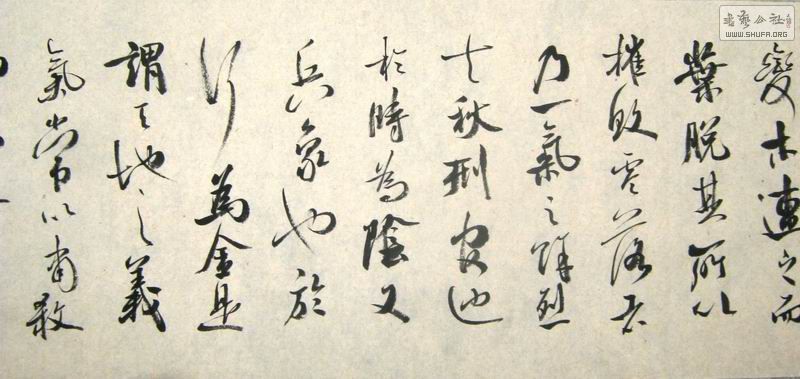 變木遭之而
葉脫其所以
摧敗零落者
乃一氣之餘烈
夫秋刑官也
於時為陰又
兵象也於
行為金是
謂天地之義
氣常以肅殺
書藝公社
WWW.SHUFA.ORG